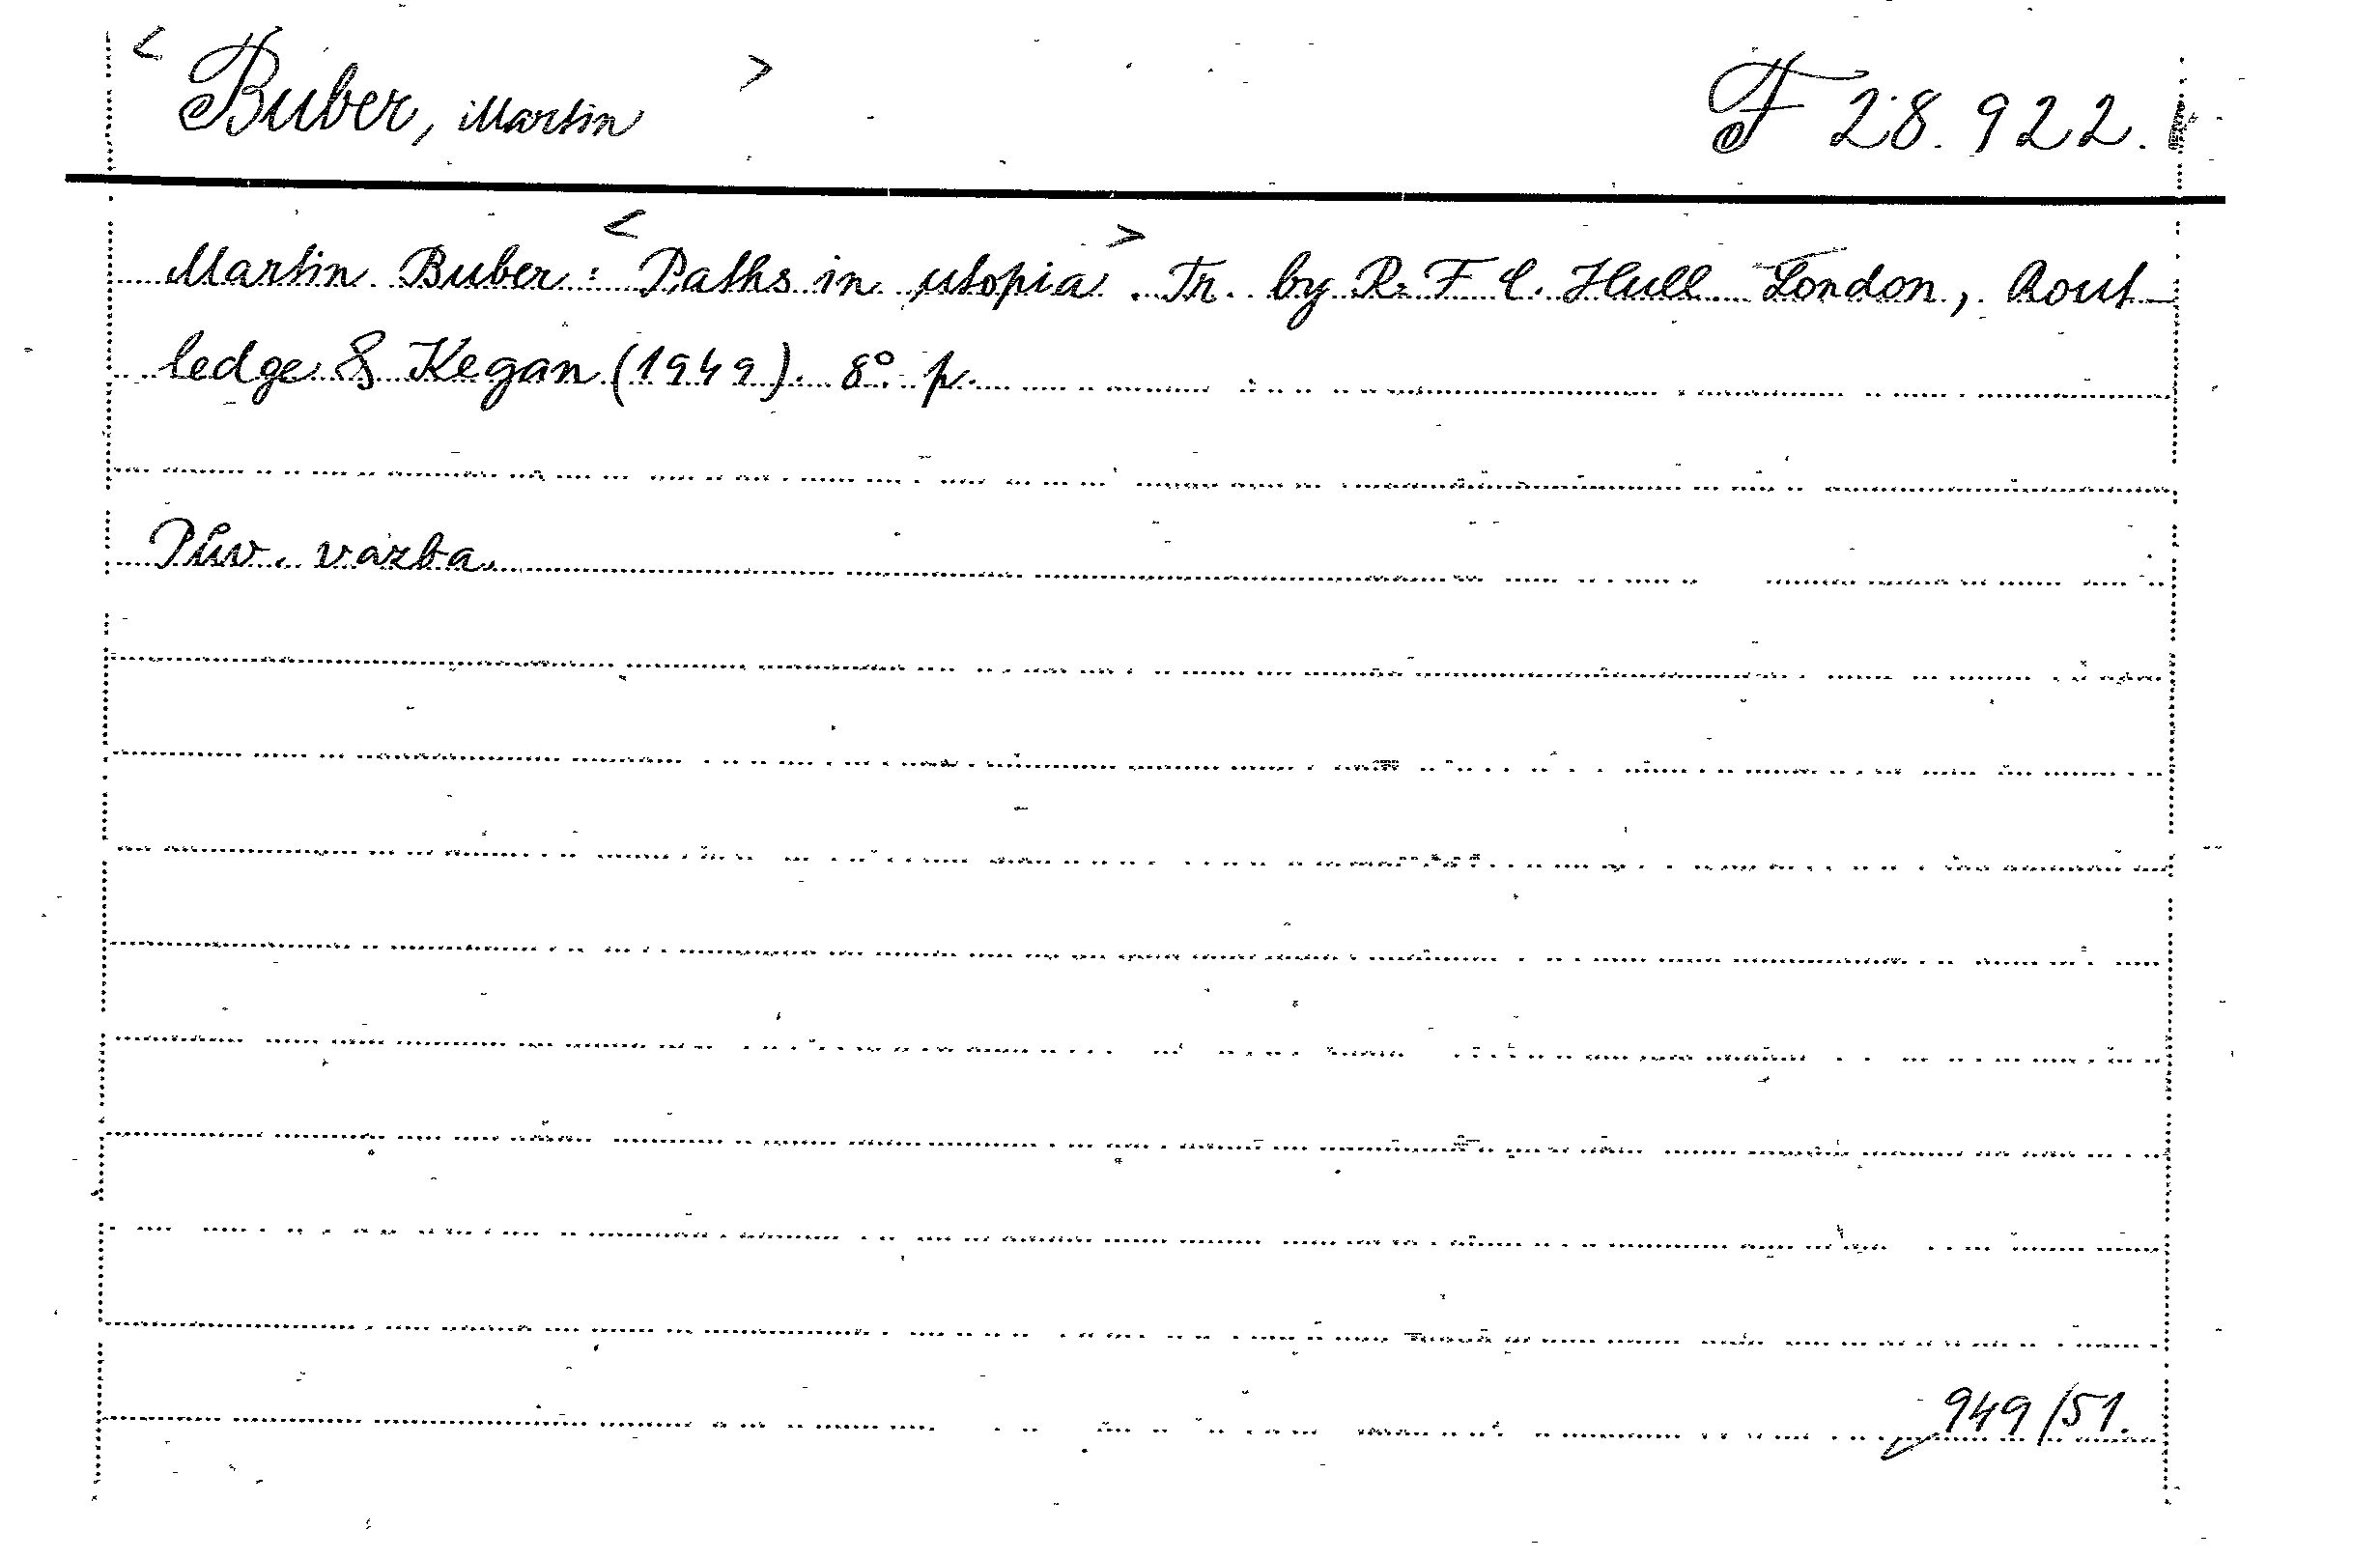 < Buber, Martin > F 28.922.
Martin Buber: < Paths in utopia >. Tr. by R. F. C. Hull London, Rout-
ledge & Kegan (1949). 8° p.
Pův. vazba.
949/51.